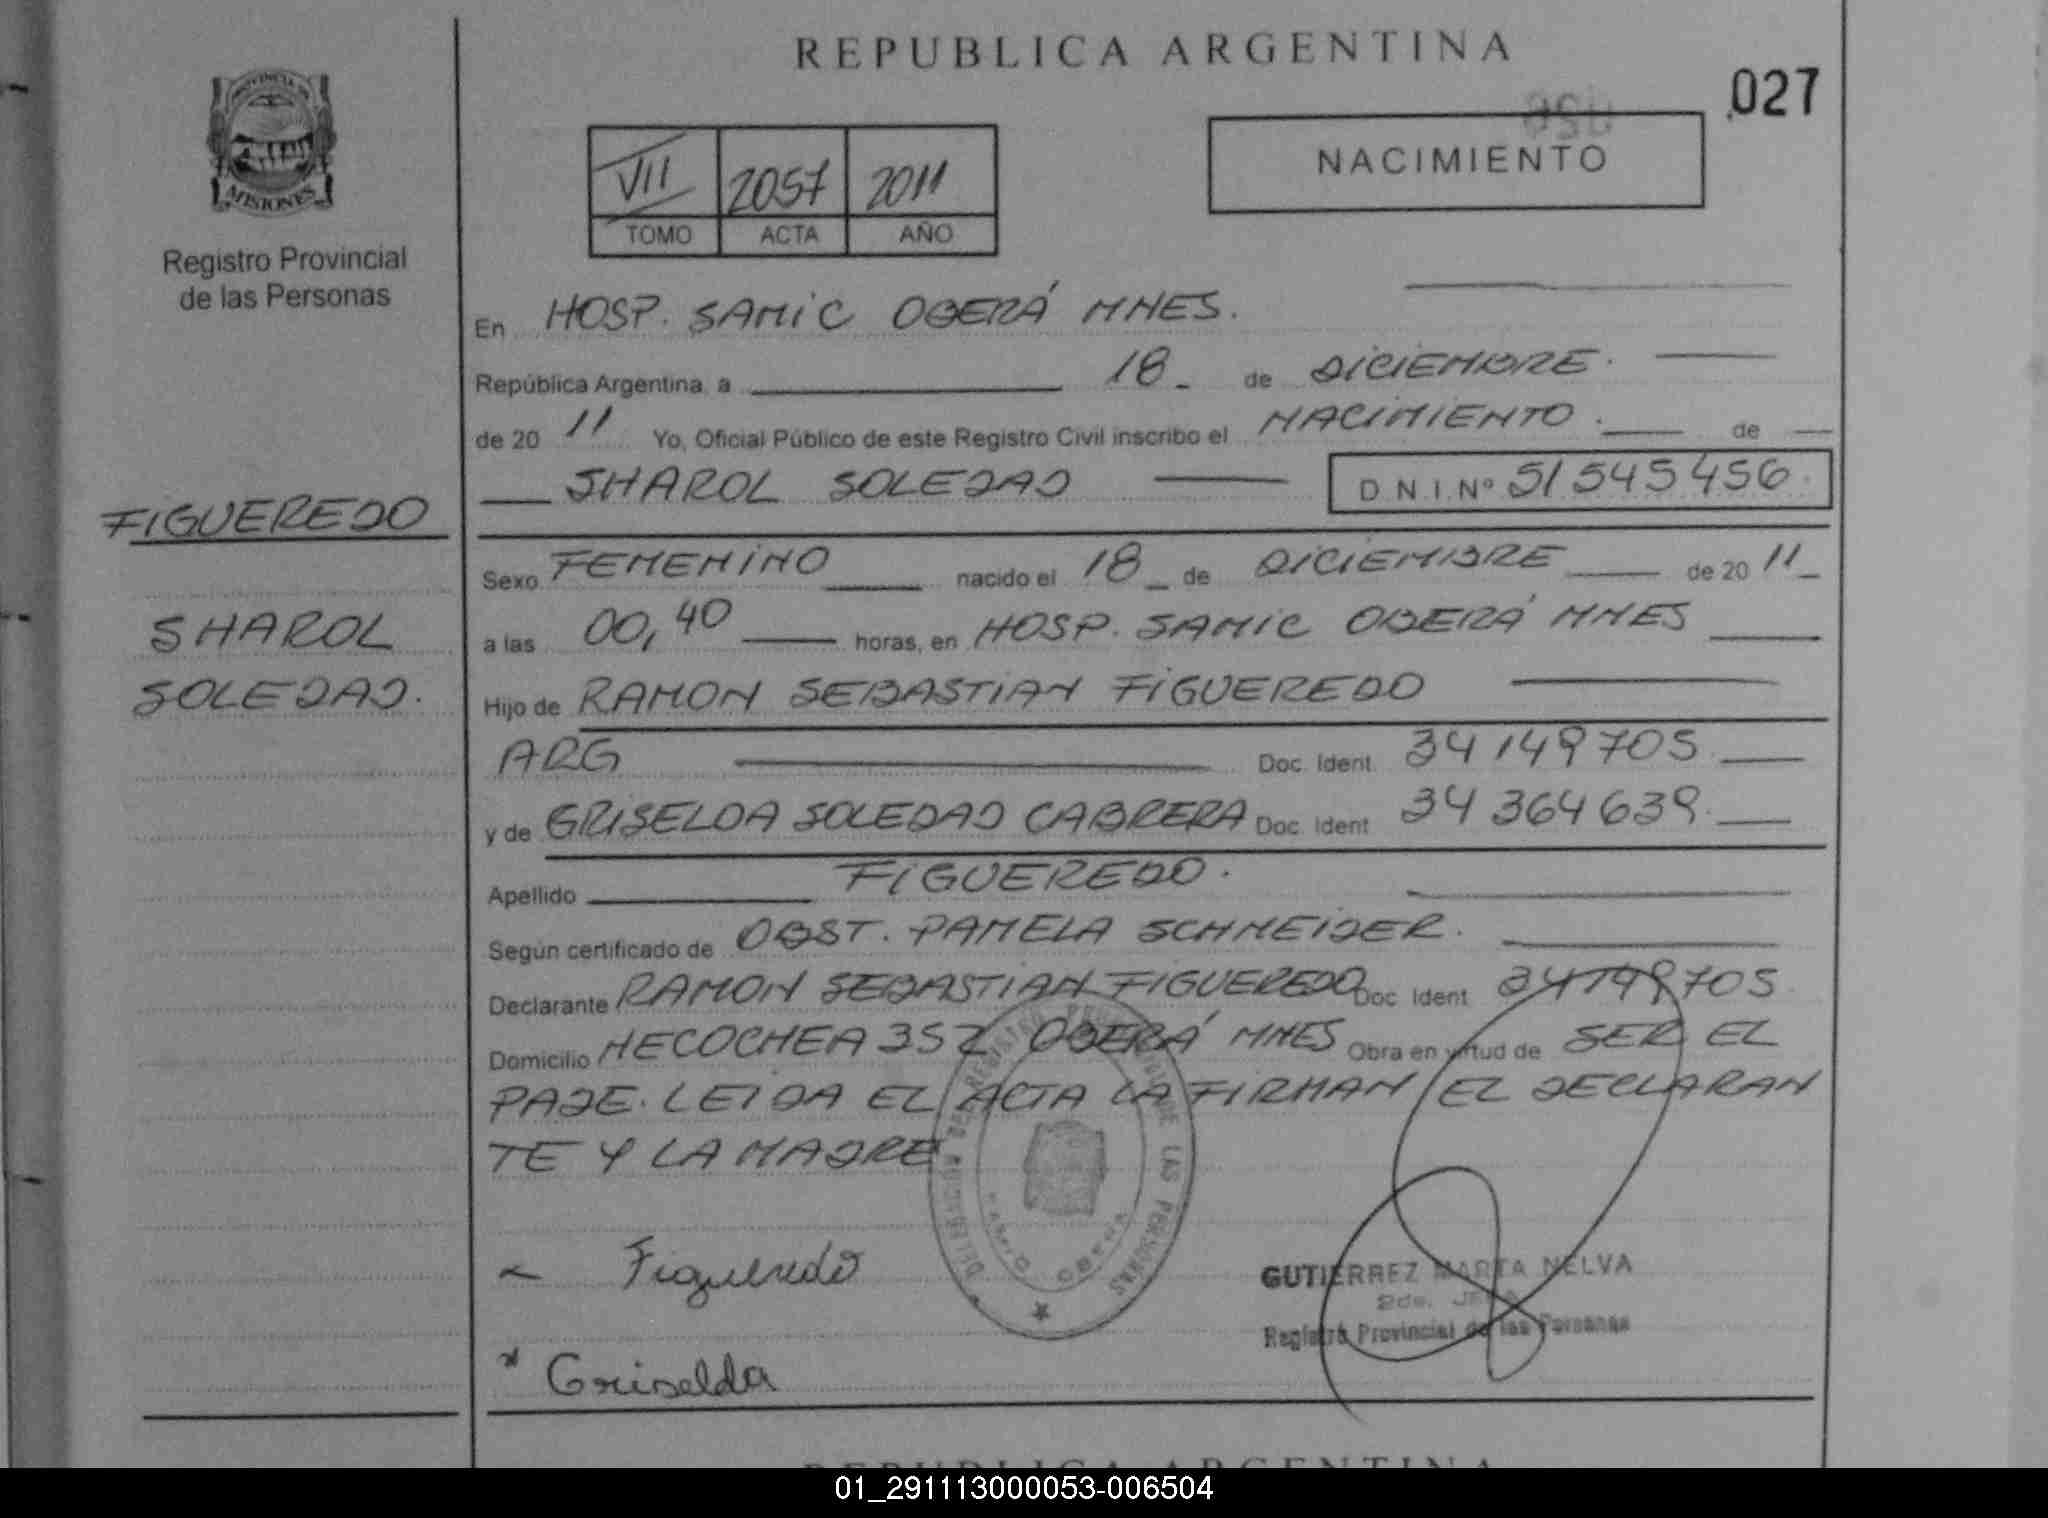 REPUBLICA ARGENTINA
027
PROVINCIA DE
MISIONES
Registro Provincial
de las Personas
VII 2057 2011
TOMO ACTA AÑO
NACIMIENTO
En HOSP. SAMIC OBERÁ MNES.
República Argentina, a 18 de DICIEMBRE.
de 20 11 Yo, Oficial Público de este Registro Civil inscribo el NACIMIENTO. de
SHAROL SOLEDAD D.N.I. Nº 51545456.
FIGUEREDO
SHAROL
SOLEDAD.
Sexo FEMENINO nacido el 18 de DICIEMBRE de 20 11
a las 00,40 horas, en HOSP. SAMIC OBERÁ MNES
Hijo de RAMON SEBASTIAN FIGUEREDO
ARG Doc. Ident. 34149705
y de GRISELDA SOLEDAD CABRERA Doc. Ident. 34364639.
Apellido FIGUEREDO.
Según certificado de OBST. PAMELA SCHNEIDER.
Declarante RAMON SEBASTIAN FIGUEREDO Doc. Ident. 34149705
Domicilio NECOCHEA 352 OBERÁ MNES Obra en virtud de SER EL
PADE. LEIDA EL ACTA LA FIRMAN EL DECLARAN
TE Y LA MADRE
Figueredo
Griselda
GUTIERREZ MARTA NELVA
2da. JEFA
Registro Provincial de las Personas
01_291113000053-006504